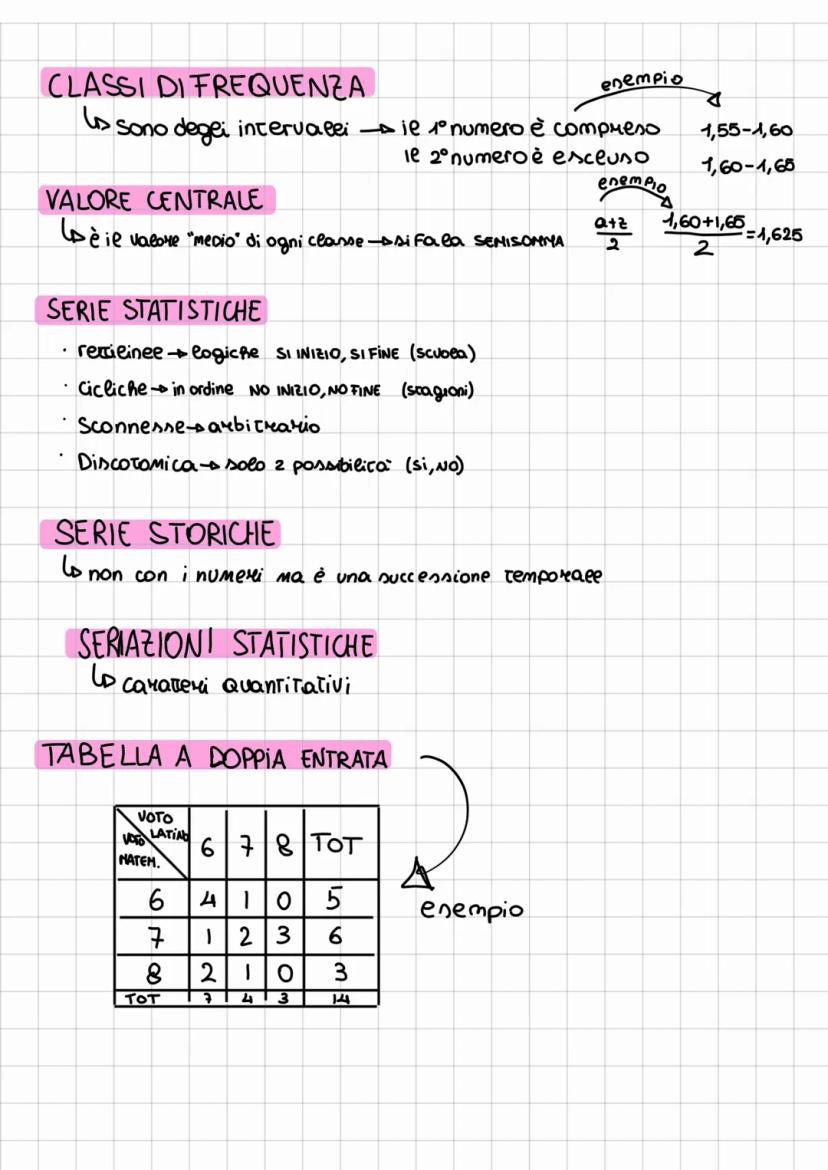 CLASSI DI FREQUENZA
esempio
↳ sono degli intervalli → il 1° numero è compreso 1,55-1,60
il 2° numero è escluso 1,60-1,65
VALORE CENTRALE
esempio
↳ è il valore "MEDIO" di ogni classe → si fa la SEMISOMMA a+z/2 1,60+1,65/2 =1,625
SERIE STATISTICHE
· rettilinee → logiche SI INIZIO, SI FINE (scuola)
· Cicliche → in ordine NO INIZIO, NO FINE (stagioni)
· Sconnesse → arbitrario
· Discotomica → solo 2 possibilità (si, NO)
SERIE STORICHE
↳ non con i numeri ma è una successione temporale
SERIAZIONI STATISTICHE
↳ caratteri quantitativi
TABELLA A DOPPIA ENTRATA
VOTO LATINO
VOTO MATEM.
6 7 8 TOT
6 4 1 0 5
7 1 2 3 6
8 2 1 0 3
TOT 7 4 3 14
esempio